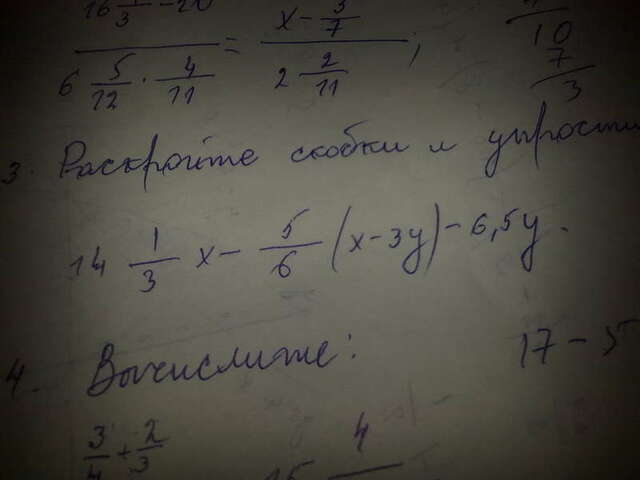 x - 3/7
6 5/12 · 4/11 = 2 2/11 ;
10
7/3
3. Раскройте скобки и упрости
14 1/3 x - 5/6 (x - 3y) - 6,5y.
4. Вычислите: 17 - 5
3/4 + 2/3
4